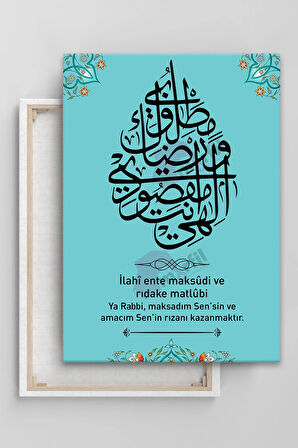 إلهي أنت مقصودي
ورضاك مطلوبي
İlahî ente maksûdi ve
rıdake matlûbi
Ya Rabbi, maksadım Sen'sin ve
amacım Sen'in rızanı kazanmaktır.